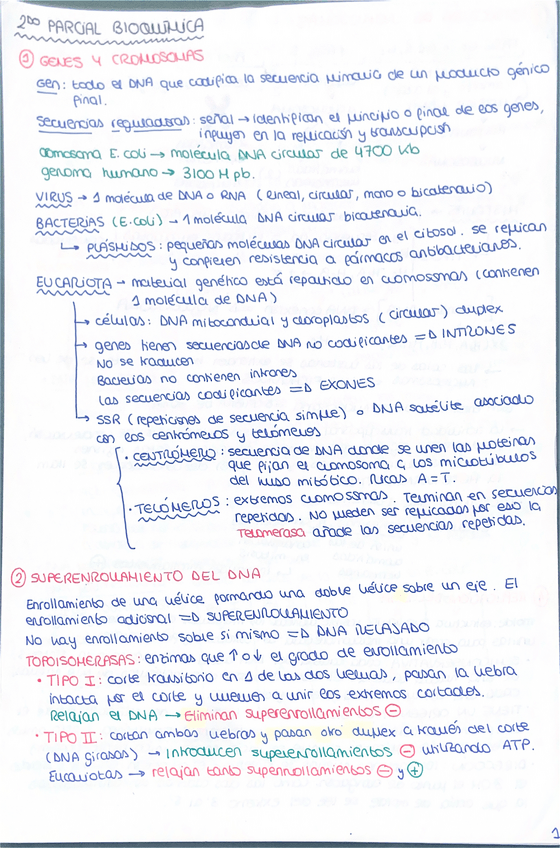 2DO PARCIAL BIOQUÍMICA
① GENES Y CROMOSOMAS
Gen: todo el DNA que codifica la secuencia primaria de un producto génico
final.
Secuencias reguladoras: señal → identifican el principio o final de los genes,
influyen en la replicación y transcripción
cromosoma E. coli → molécula DNA circular de 4700 Kb
genoma humano → 3100 M pb.
VIRUS → 1 molécula de DNA o RNA (lineal, circular, mono o bicatenario)
BACTERIAS (E. coli) → 1 molécula DNA circular bicatenaria.
↳ PLÁSMIDOS: pequeñas moléculas DNA circular en el citosol. Se replican
y confieren resistencia a fármacos antibacterianos.
EUCARIOTA → material genético está repartido en cromosomas (contienen
1 molécula de DNA)
→ células: DNA mitocondrial y cloroplastos (circular) duplex
→ genes tienen secuencias de DNA no codificantes ⇒ INTRONES
No se traducen
Bacterias no contienen intrones
Las secuencias codificantes ⇒ EXONES
→ SSR (repeticiones de secuencia simple) o DNA satélite asociado
con los centrómeros y telómeros
· CENTRÓMERO: secuencia de DNA donde se unen las proteínas
que fijan el cromosoma a los microtúbulos
del huso mitótico. Ricas A=T.
· TELÓMEROS: extremos cromosomas. Terminan en secuencias
repetidas. No pueden ser replicados por eso la
telomerasa añade las secuencias repetidas.
② SUPERENROLLAMIENTO DEL DNA
Enrollamiento de una hélice formando una doble hélice sobre un eje. El
enrollamiento adicional ⇒ SUPERENROLLAMIENTO
No hay enrollamiento sobre si mismo ⇒ DNA RELAJADO
TOPOISOMERASAS: enzimas que ↑ o ↓ el grado de enrollamiento
• TIPO I: corte transitorio en 1 de las dos hebras, pasan la hebra
intacta por el corte y vuelven a unir los extremos cortados.
Relajan el DNA → Eliminan superenrollamientos ⊖
• TIPO II: cortan ambas hebras y pasan otro duplex a través del corte
(DNA girasas) → Introducen superenrollamientos ⊖ utilizando ATP.
Eucariotas → relajan tanto superrollamientos ⊖ y ⊕
1